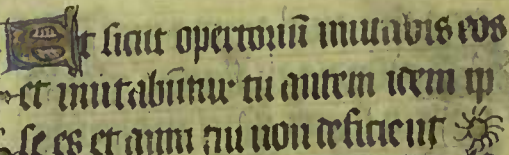 Et sicut opertoriū mutabis eos
et mutabūtur tu autem idem ip
se es et anni tui non deficient